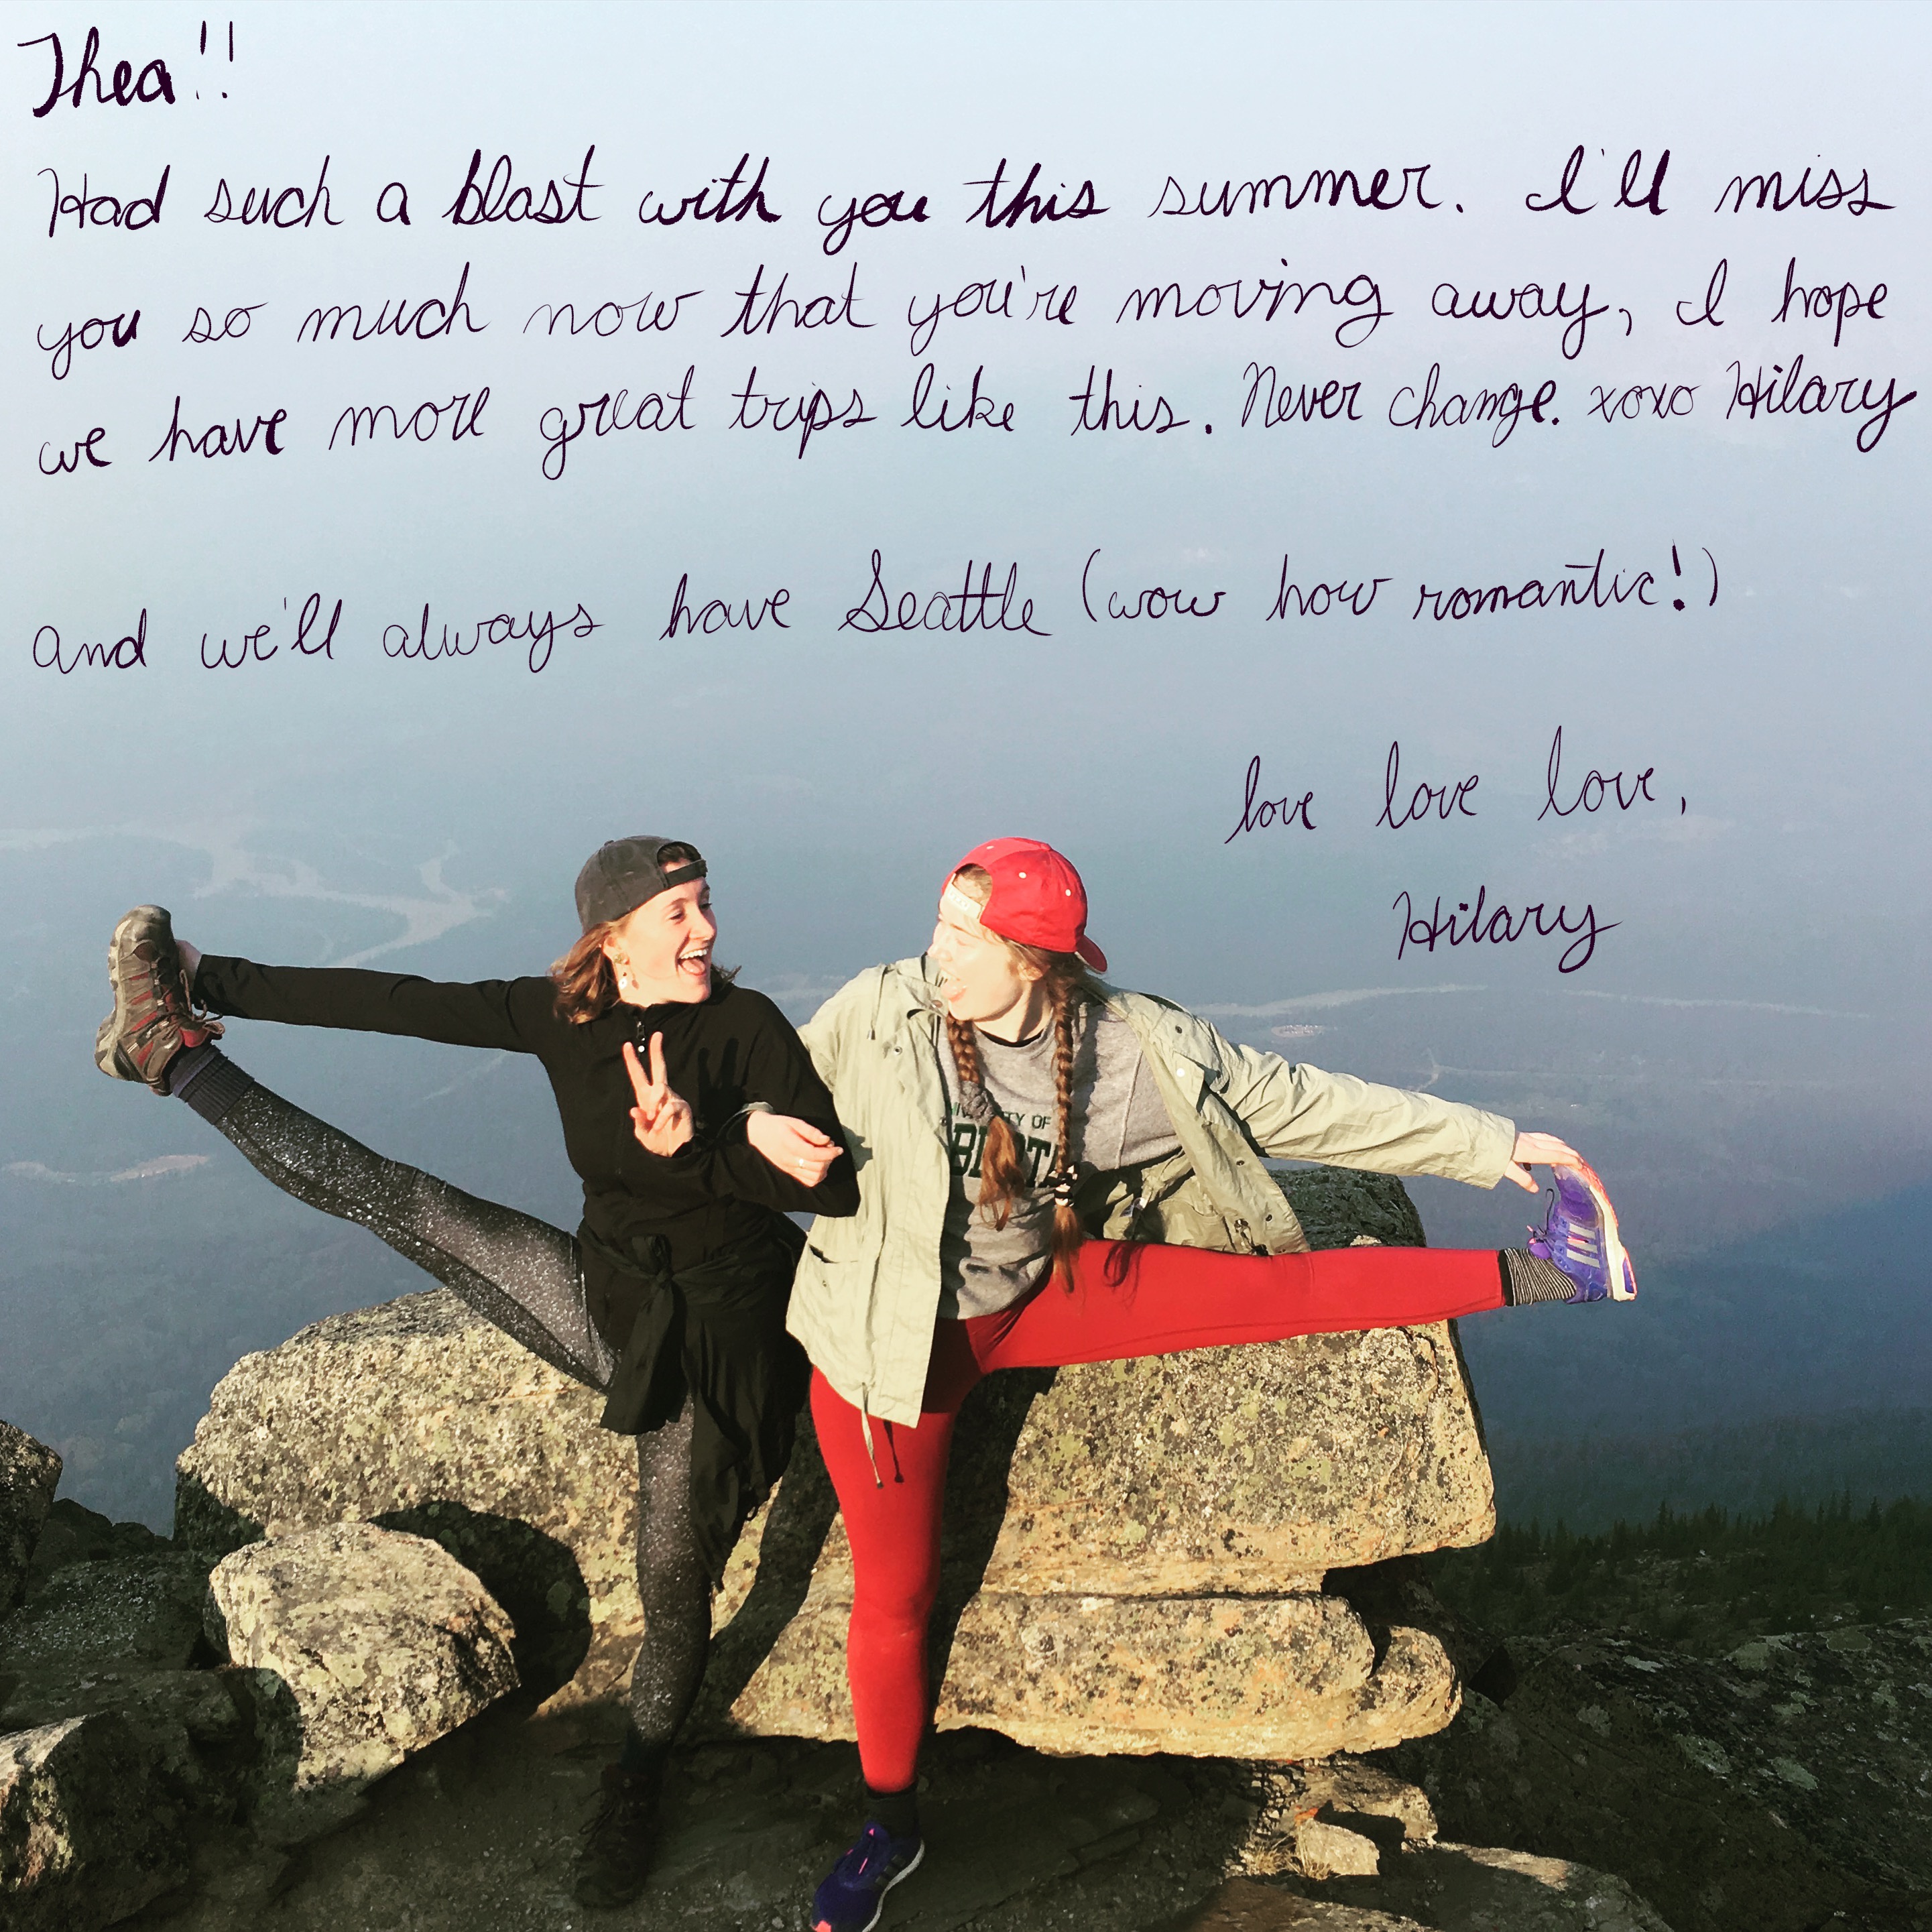 Thea!!
Had such a blast with you this summer. I'll miss
you so much now that you're moving away, I hope
we have more great trips like this. Never change. xoxo Hilary
and we'll always have Seattle (wow how romantic!)
love love love,
Hilary
OF